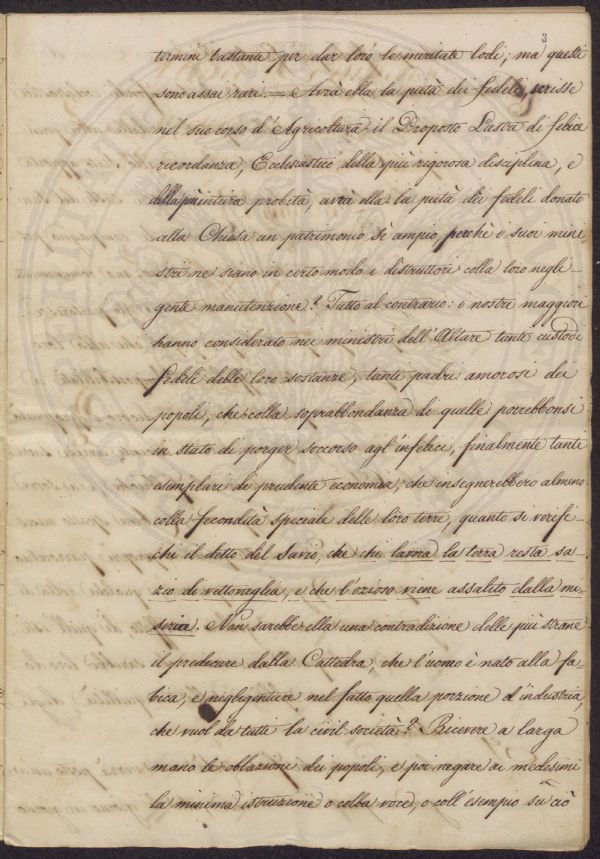 3
termini bastanti per dar loro le meritate lodi; ma questi
sono assai rari. = Avrà ella la pietà dei fedeli, scrisse
nel suo corso d'Agricoltura il Proposto Lastri di felice
ricordanza, Ecclesiastico della più rigorosa disciplina, e
della più intiera probità, avrà ella la pietà dei fedeli donato
alla Chiesa un patrimonio sì ampio, perchè i suoi mini-
stri ne siano in certo modo i distruttori colla loro negli-
gente manutenzione? Tutto al contrario: i nostri maggiori
hanno considerato nei ministri dell'Altare tanti custodi
fedeli delle loro sostanze, tanti padri amorosi dei
popoli, che colla soprabbondanza di quelle porrebbonsi
in stato di porger soccorso agl'infelici, finalmente tanti
esemplari di prudente economia, che insegnerebbero almeno
colla fecondità speciale delle loro terre, quanto si verifi-
chi il detto del Savio, che chi lavora la terra resta sa-
zio di vettovaglia, e che l'ozioso viene assalito dalla mi-
seria. Non sarebbe ella una contradizione delle più strane
il predicare dalla Cattedra, che l'uomo è nato alla fa-
tica, e negligentare nel fatto quella porzione d'industria,
che vuol da tutti la civil società? Ricevere a larga
mano le oblazioni dei popoli, e poi negare ai medesimi
la minima istruzione o colla voce, o coll'esempio su ciò